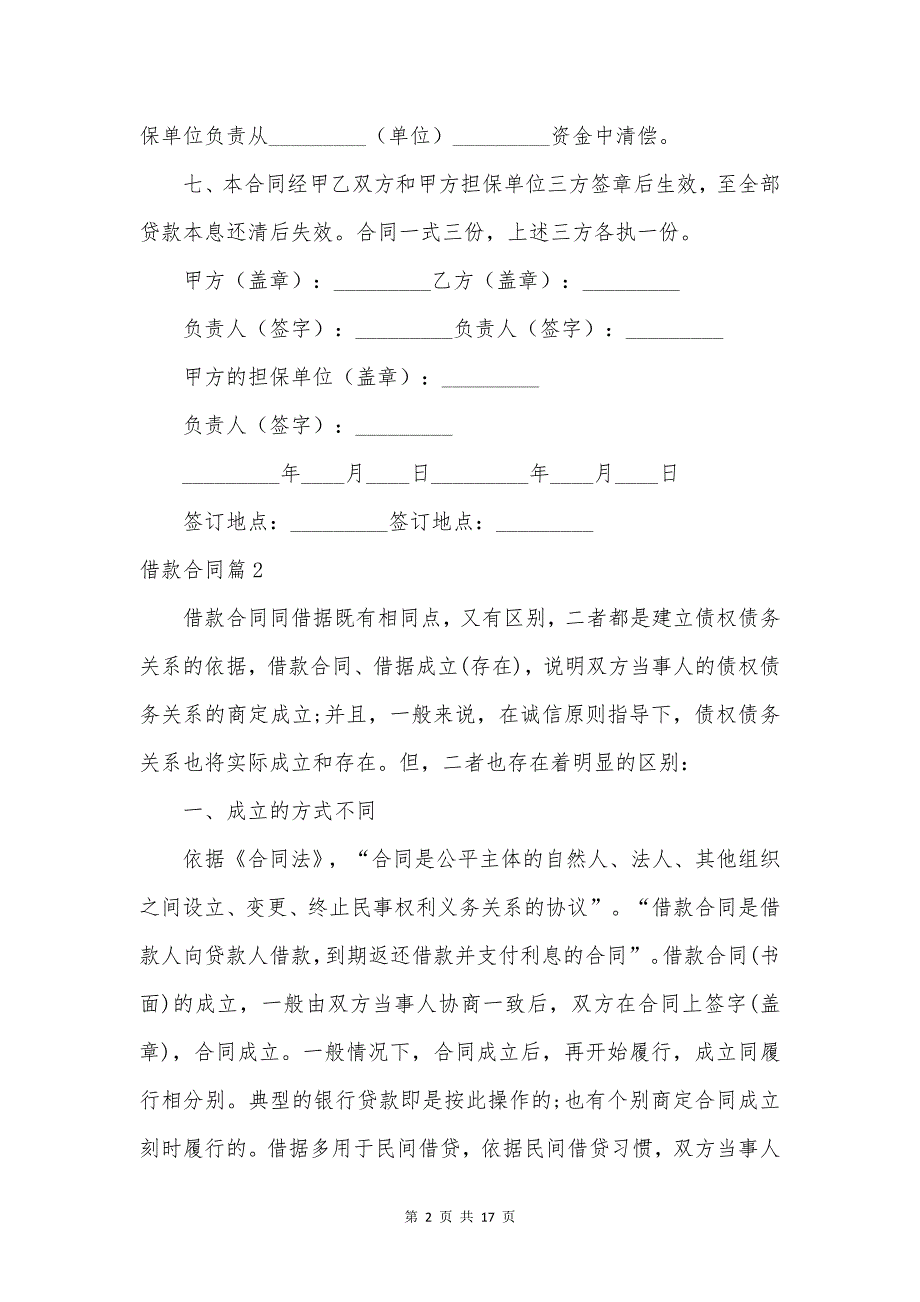 保单位负责从_________（单位）_________资金中清偿。
七、本合同经甲乙双方和甲方担保单位三方签章后生效，至全部
贷款本息还清后失效。合同一式三份，上述三方各执一份。
甲方（盖章）：_________乙方（盖章）：_________
负责人（签字）：_________负责人（签字）：_________
甲方的担保单位（盖章）：_________
负责人（签字）：_________
_________年____月____日_________年____月____日
签订地点：_________签订地点：_________
借款合同篇2
借款合同同借据既有相同点，又有区别，二者都是建立债权债务
关系的依据，借款合同、借据成立(存在)，说明双方当事人的债权债
务关系的商定成立;并且，一般来说，在诚信原则指导下，债权债务
关系也将实际成立和存在。但，二者也存在着明显的区别：
一、成立的方式不同
依据《合同法》，“合同是公平主体的自然人、法人、其他组织
之间设立、变更、终止民事权利义务关系的协议”。“借款合同是借
款人向贷款人借款，到期返还借款并支付利息的合同”。借款合同(书
面)的成立，一般由双方当事人协商一致后，双方在合同上签字(盖
章)，合同成立。一般情况下，合同成立后，再开始履行，成立同履
行相分别。典型的银行贷款即是按此操作的;也有个别商定合同成立
刻时履行的。借据多用于民间借贷，依据民间借贷习惯，双方当事人
第 2 页 共 17 页